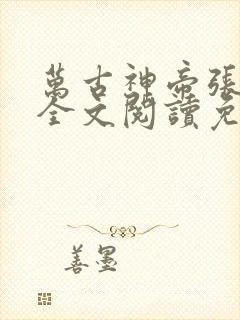 萬古神帝張
全文閱讀免
善墨